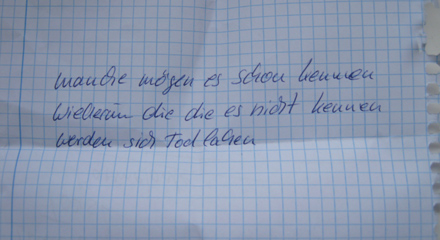 manche mögen es schon kennen
Wiederum die die es nicht kennen
werden sich Tod lachen